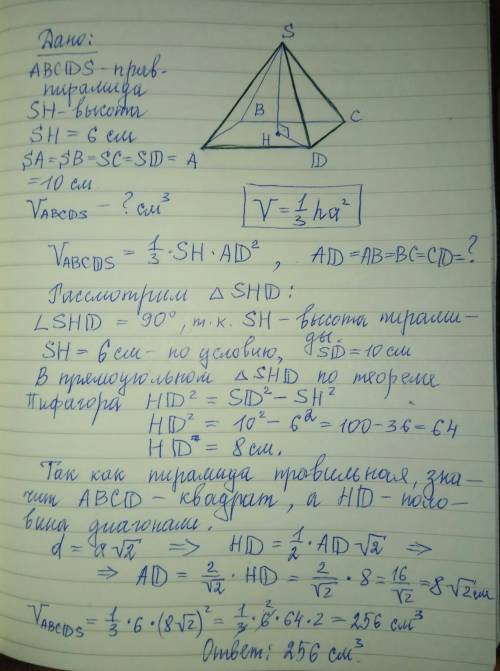 Дано:
ABCDS - прав.
пирамида
SH - высота
SH = 6 см
SA = SB = SC = SD =
= 10 см
V_ABCDS - ? см³
S
B
C
H
A
D
V = 1/3 ha²
V_ABCDS = 1/3 · SH · AD², AD = AB = BC = CD = ?
Рассмотрим △ SHD:
∠SHD = 90°, т.к. SH - высота пирами-
ды.
SH = 6 см - по условию, SD = 10 см
В прямоугольном △SHD по теореме
Пифагора HD² = SD² - SH²
HD² = 10² - 6² = 100 - 36 = 64
HD = 8 см.
Так как пирамида правильная, зна-
чит ABCD - квадрат, а HD - поло-
вина диагонали.
d = a√2 ⇒ HD = 1/2 · AD√2 ⇒
⇒ AD = 2/√2 · HD = 2/√2 · 8 = 16/√2 = 8√2 см
V_ABCDS = 1/3 · 6 · (8√2)² = 1/3 · 6 2 · 64 · 2 = 256 см³
Ответ: 256 см³.